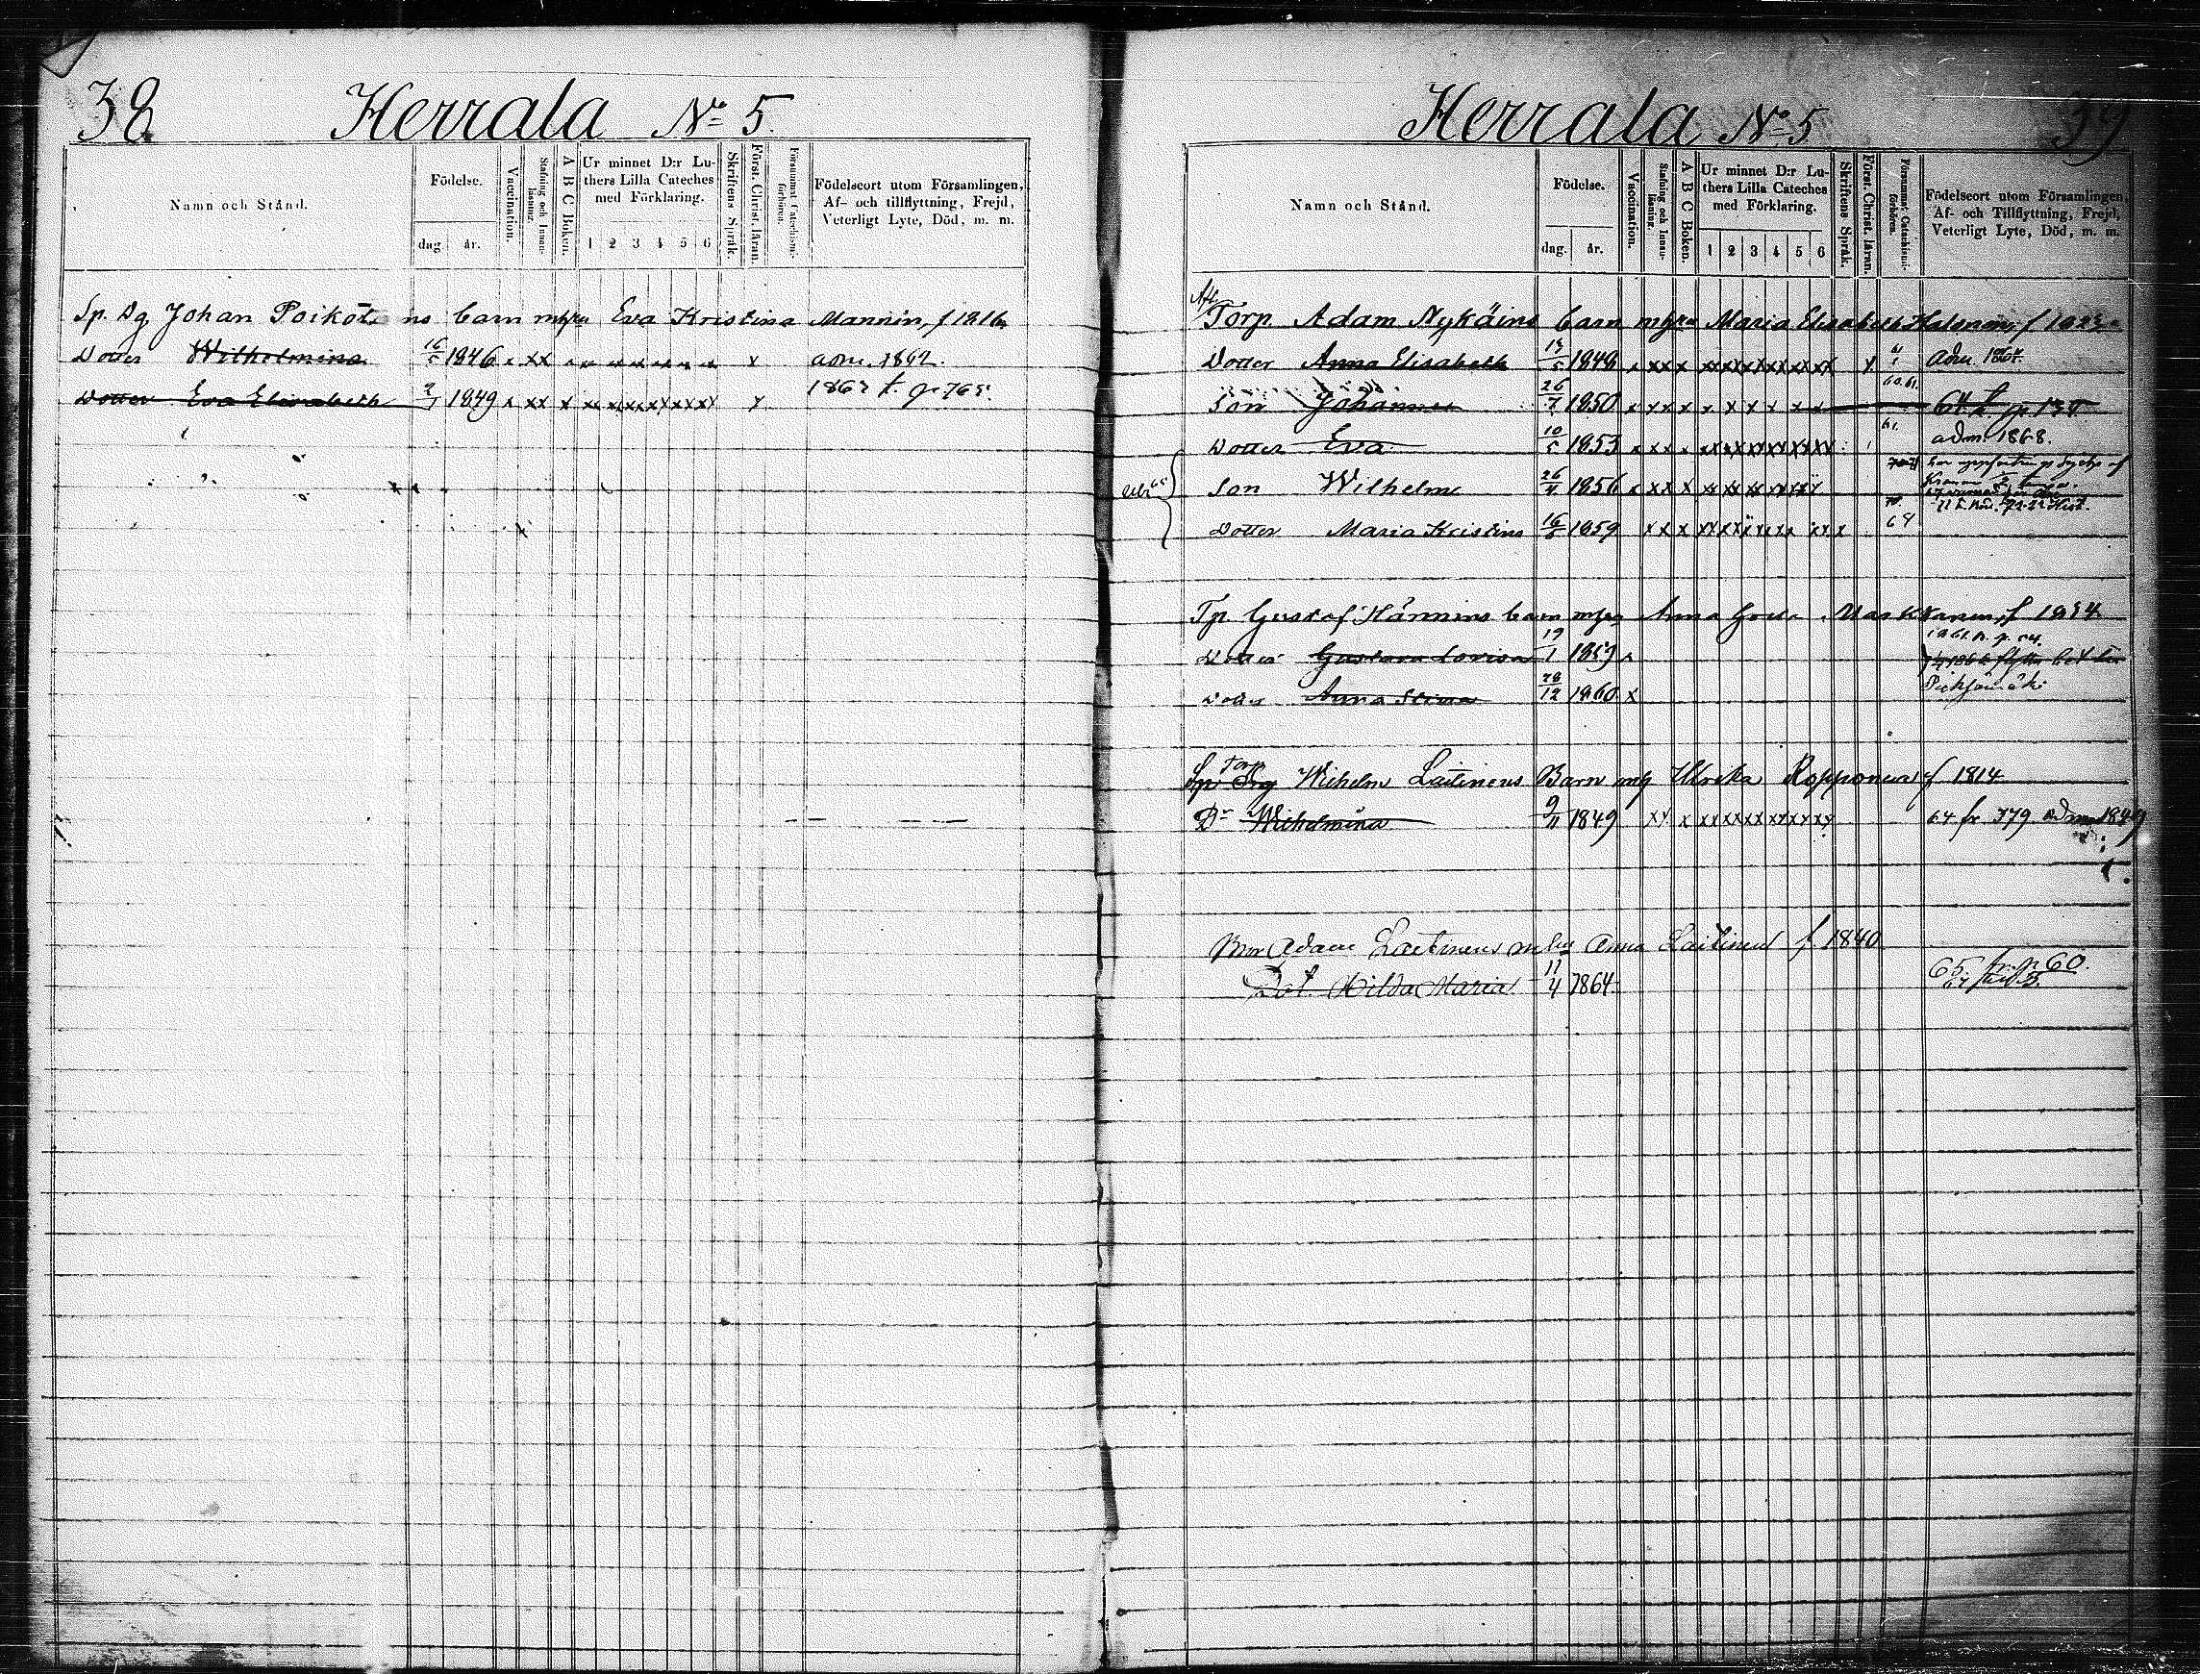 38
Herrala No 5.
Namn och Stånd.
Födelse.
dag. år.
Vaccination.
Stafning och Innan-läsning.
A B C Boken.
Ur minnet D:r Lu-
thers Lilla Cateches
med Förklaring.
1 2 3 4 5 6
Skriftens Språk.
Först. Christ. läran.
Försummat Catechismi-förhören.
Födelseort utom Församlingen,
Af- och tillflyttning, Frejd,
Veterligt Lyte, Död, m. m.
Sp. Dg Johan Poikolains barn mhru Eva Kristina Mannin, f 1816
Dotter Wilhelmina 16/5 1846 x xx x x x x x x x x adm. 1862.
Dotter Eva Elisabeth 2/7 1849 x xx x xx xxxxxxxx x 1863 t. p. 765.
39
Herrala No 5
Namn och Stånd.
Födelse.
dag. år.
Vaccination.
Stafning och Innan-läsning.
A B C Boken.
Ur minnet D:r Lu-
thers Lilla Cateches
med Förklaring.
1 2 3 4 5 6
Skriftens Språk.
Först. Christ. läran.
Försummat Catechismi-förhören.
Födelseort utom Församlingen,
Af- och Tillflyttning, Frejd,
Veterligt Lyte, Död, m. m.
Afl. Torp. Adam Nykäins barn mhru Maria Elisabeth
Dotter Anna Elisabeth 1848 x xx x xxxxxxxxxxx x 61 adm. 1864.
Son Johannes 26/7 1850 x xx x x x x x x x 60.61.
Dotter Eva 10/5 1853 x xx x xxxxxxxxxxx 61. adm. 1868.
Son Wilhelm 26/4 1856 x xx x xx xx xx xx xx
Dotter Maria Kristina 16/8 1859 xx x xxxxxxxxx xx x 69
Tp. Gustaf Hännins barn mhru Anna Greta f 1834
Dotter Gustava Lovisa 19/1 1859 x
Dotter Anna Stina 28/12 1860 x
Torp Wilhelm Laitinens Barn mg Ulrika Ropponen f 1814
Dr Wilhelmina 9/11 1849 xx x xxxxxxxxxxxx 64 fr 779 adm 1869
Bror Adam Laitinens m hu Anna Laitinen f 1840
Dot. Hilda Maria 11/4 1864. 65. fr. p 60.